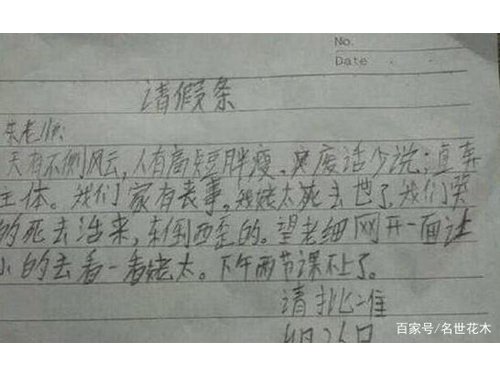 No.
Date
请假条
朱老师:
天有不侧风云,人有高短胖瘦,废话少说,直奔
主体。我们家有丧事,我姥太死去世了我们哭
的死去活来,东倒西歪的。望老细网开一面让
小的去看一看姥太。下午两节课不上了。
请批准
4月26日
百家号/名世花木